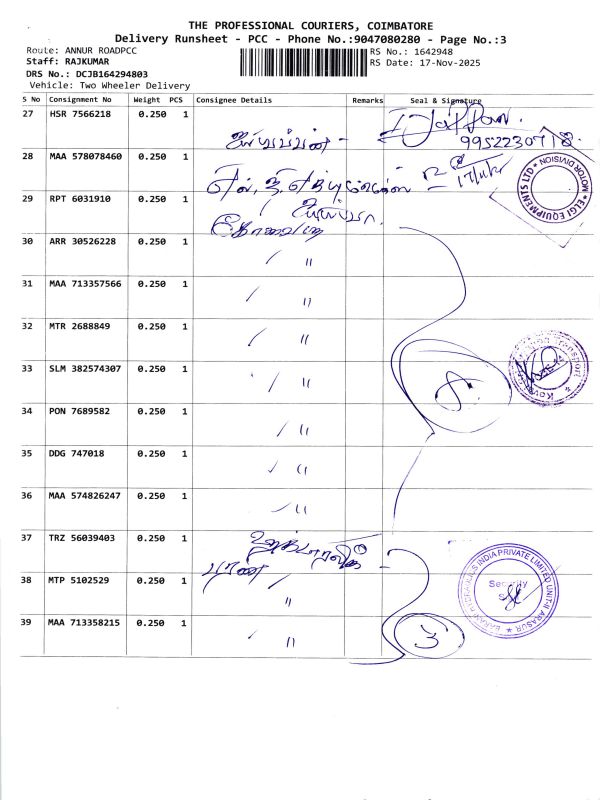 THE PROFESSIONAL COURIERS, COIMBATORE
Delivery Runsheet - PCC - Phone No.:9047080280 - Page No.:3
Route: ANNUR ROADPCC RS No.: 1642948
Staff: RAJKUMAR RS Date: 17-Nov-2025
DRS No.: DCJB164294803
Vehicle: Two Wheeler Delivery
S No Consignment No Weight PCS Consignee Details Remarks Seal & Signature
27 HSR 7566218 0.250 1
9952230718
28 MAA 578078460 0.250 1
MOTOR DIVISION ELGI EQUIPMENTS LTD
29 RPT 6031910 0.250 1
30 ARR 30526228 0.250 1 / "
31 MAA 713357566 0.250 1 / "
32 MTR 2688849 0.250 1 / "
33 SLM 382574307 0.250 1 / "
34 PON 7689582 0.250 1 / "
35 DDG 747018 0.250 1 / "
36 MAA 574826247 0.250 1 / "
37 TRZ 56039403 0.250 1
38 MTP 5102529 0.250 1 / "
Security
INDIA PRIVATE LIMITED UNIT ARASUR
39 MAA 713358215 0.250 1 / " 3